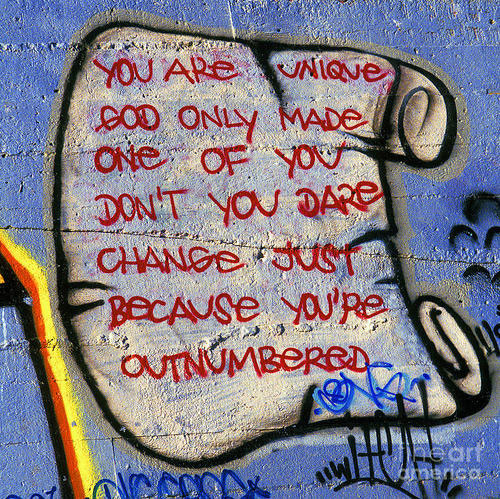 YOU ARE UNIQUE
GOD ONLY MADE
ONE OF YOU
DON'T YOU DARE
CHANGE JUST
BECAUSE YOU'RE
OUTNUMBERED
fineart
america